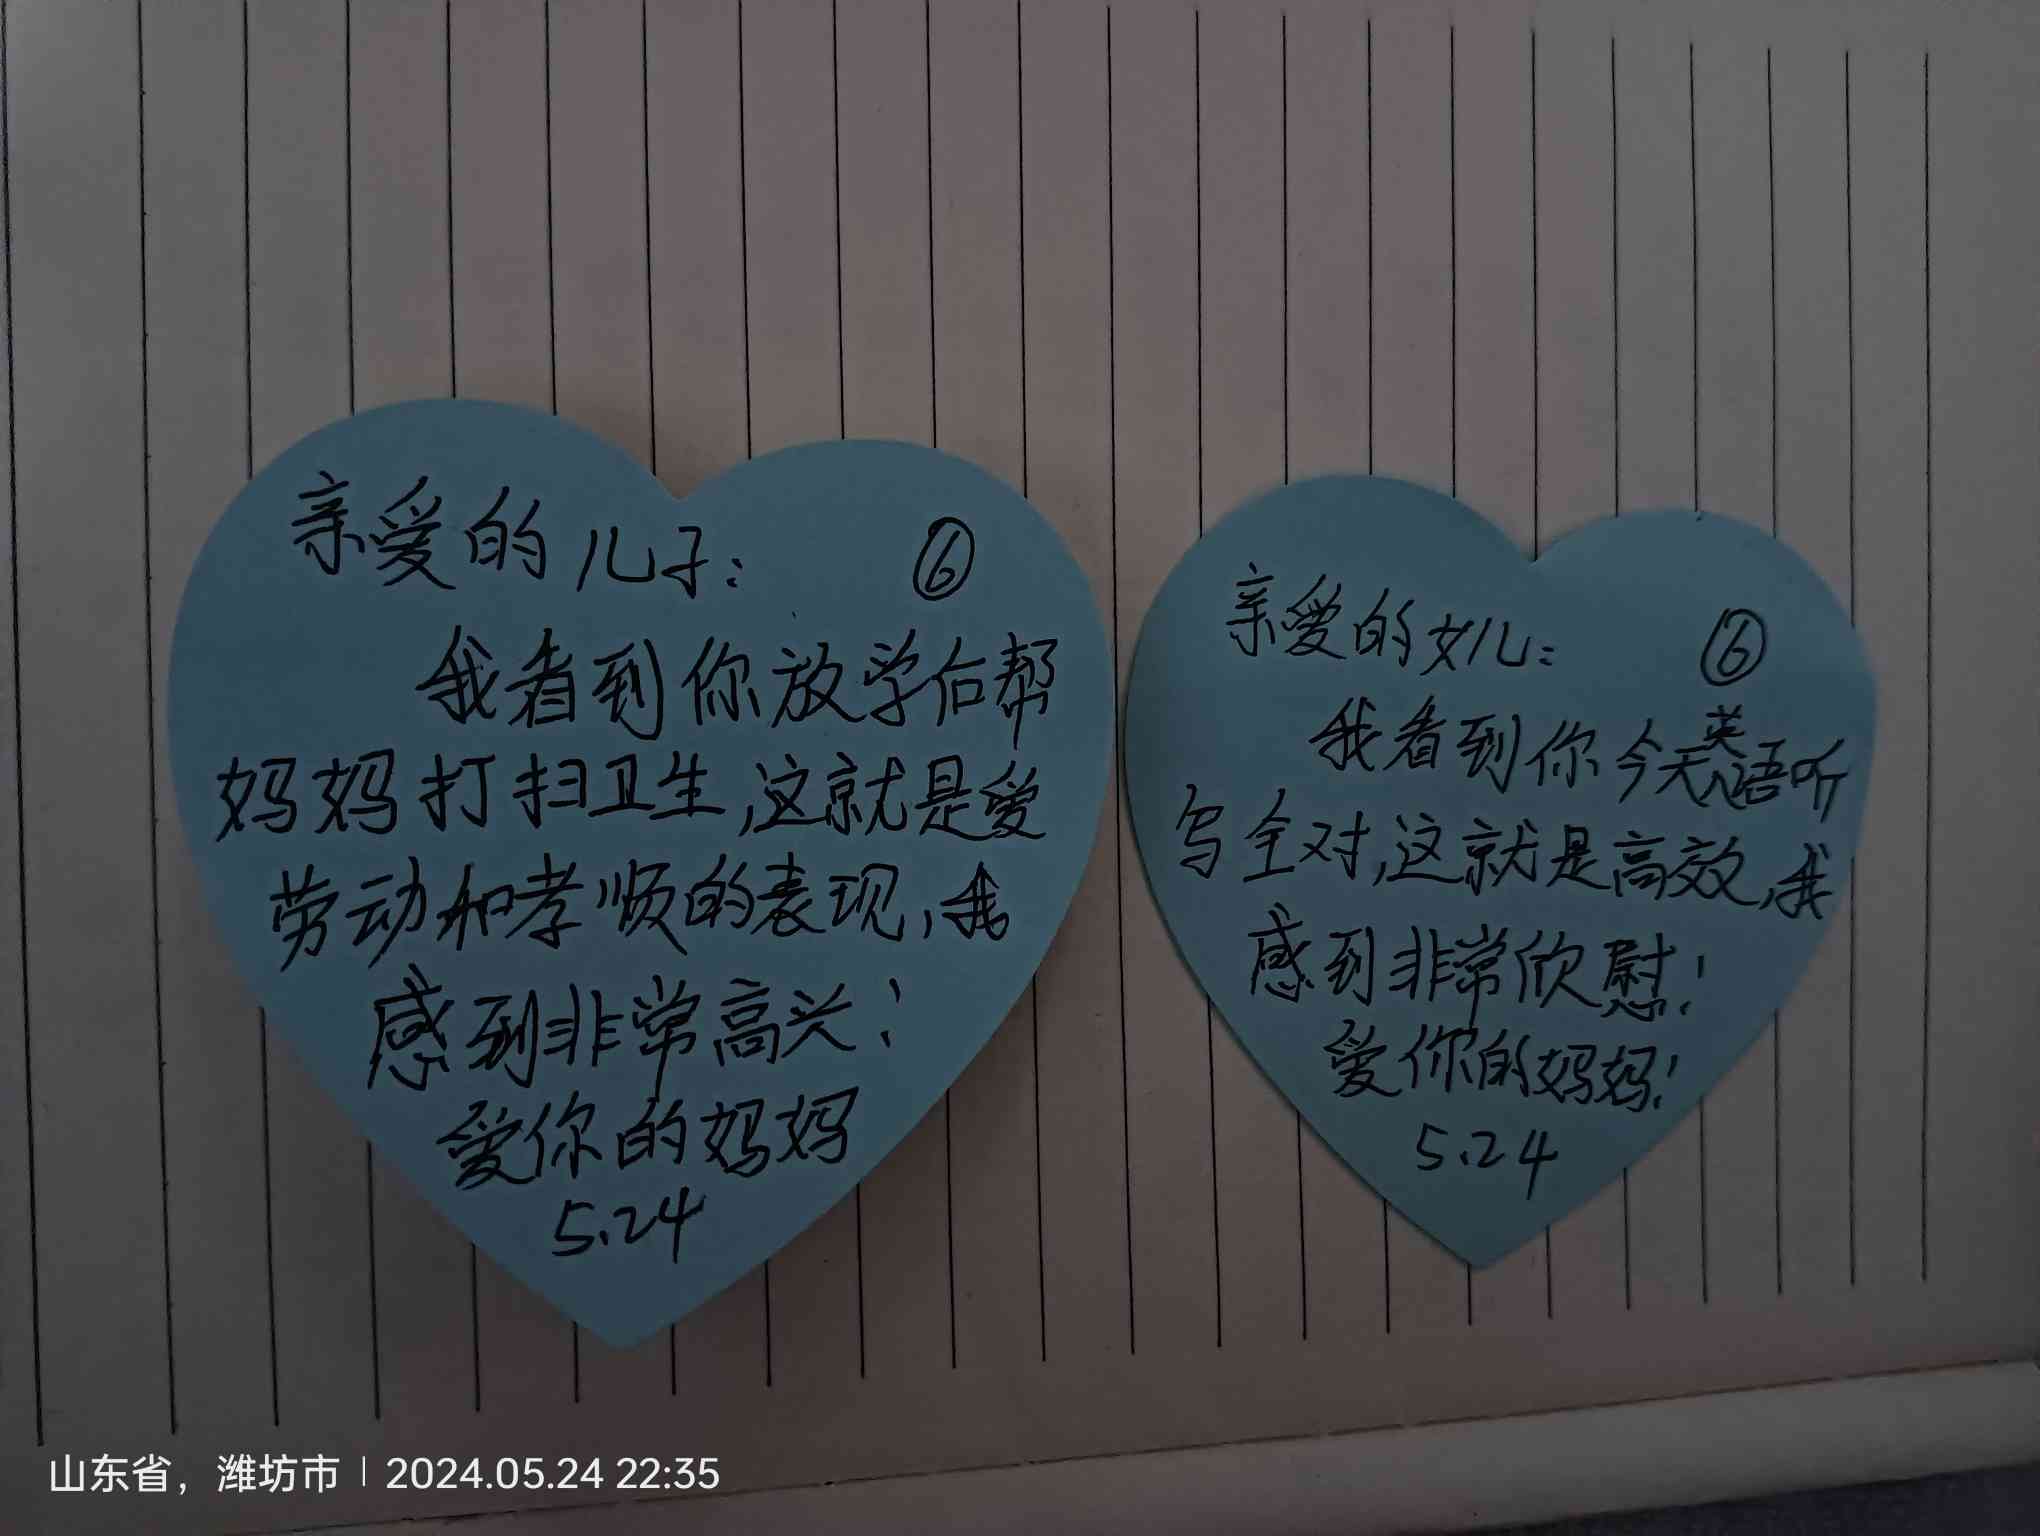 亲爱的儿子：
⑥
我看到你放学后帮
妈妈打扫卫生,这就是爱
劳动和孝顺的表现,我
感到非常高兴！
爱你的妈妈
5.24
亲爱的女儿：
⑥
我看到你今天英语听
写全对,这就是高效,我
感到非常欣慰！
爱你的妈妈！
5.24
山东省，潍坊市 | 2024.05.24 22:35